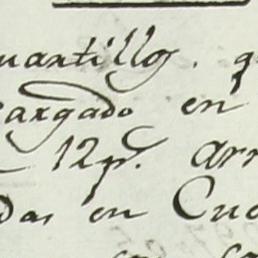 uartillo. q
cargado en
12p. arr
das en Cue
en